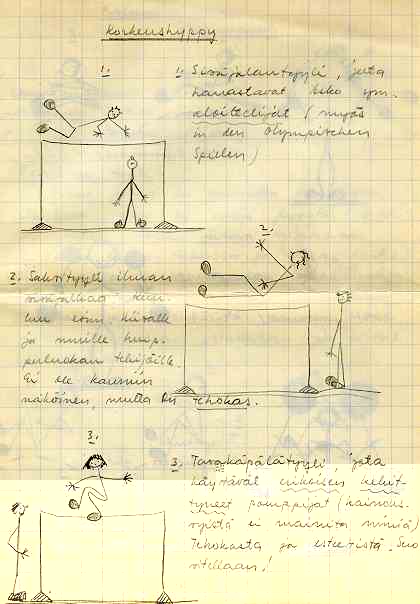 Korkeushyppy
1.
1. Sisäjalantyyli, jota
harrastavat koko ym.
aloittelijat (myös
in den Olympischen
Spielen)
2.
2. Saksityyli ilman
Kuu-
luu esim.
ja muille huip-
puluokan tekijöille.
Ei ole kauniin
näköinen, mutta on
tehokas.
3.
3. jota
käytävät erikoisen kehit-
tyneet pomppijat (kainous-
syistä ei mainita nimiä)
Tehokasta ja esteetistä. Suo-
sitellaan!